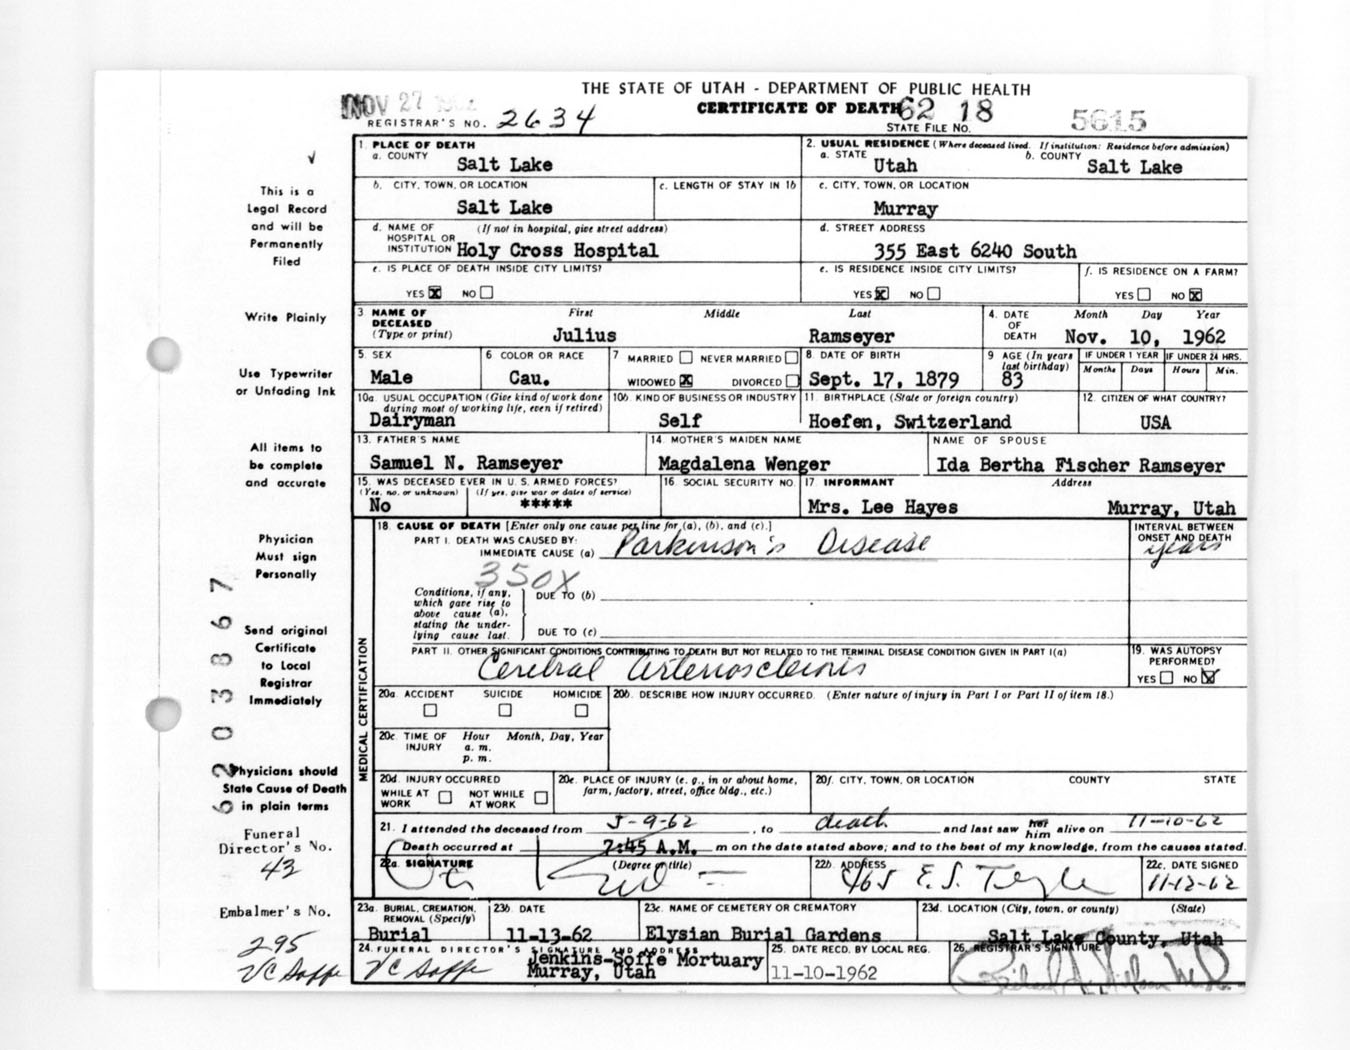 THE STATE OF UTAH - DEPARTMENT OF PUBLIC HEALTH
NOV 27 1962
CERTIFICATE OF DEATH 62 18 5615
REGISTRAR'S NO. 2634
STATE FILE NO.
This is a
Legal Record
and will be
Permanently
Filed
Write Plainly
Use Typewriter
or Unfading Ink
All items to
be complete
and accurate
Physician
Must sign
Personally
Send original
Certificate
to Local
Registrar
Immediately
Physicians should
State Cause of Death
in plain terms
Funeral
Director's No.
43
Embalmer's No.
295
VC Soffe
62 03367
1. PLACE OF DEATH
a. COUNTY Salt Lake
2. USUAL RESIDENCE (Where deceased lived. If institution: Residence before admission)
a. STATE Utah b. COUNTY Salt Lake
b. CITY, TOWN, OR LOCATION Salt Lake
c. LENGTH OF STAY IN 1b
c. CITY, TOWN, OR LOCATION Murray
d. NAME OF HOSPITAL OR INSTITUTION (If not in hospital, give street address) Holy Cross Hospital
d. STREET ADDRESS 355 East 6240 South
e. IS PLACE OF DEATH INSIDE CITY LIMITS?
YES X NO
e. IS RESIDENCE INSIDE CITY LIMITS?
YES X NO
f. IS RESIDENCE ON A FARM?
YES NO X
3. NAME OF DECEASED (Type or print) First Middle Last
Julius Ramseyer
4. DATE OF DEATH Month Day Year
Nov. 10, 1962
5. SEX Male
6 COLOR OR RACE Cau.
7 MARRIED NEVER MARRIED
WIDOWED X DIVORCED
8. DATE OF BIRTH Sept. 17, 1879
9 AGE (In years last birthday) 83
IF UNDER 1 YEAR Months Days
IF UNDER 24 HRS. Hours Min.
10a. USUAL OCCUPATION (Give kind of work done during most of working life, even if retired) Dairyman
10b. KIND OF BUSINESS OR INDUSTRY Self
11. BIRTHPLACE (State or foreign country) Hoefen, Switzerland
12. CITIZEN OF WHAT COUNTRY? USA
13. FATHER'S NAME Samuel N. Ramseyer
14. MOTHER'S MAIDEN NAME Magdalena Wenger
NAME OF SPOUSE Ida Bertha Fischer Ramseyer
15. WAS DECEASED EVER IN U. S. ARMED FORCES?
(Yes, no, or unknown) (If yes, give war or dates of service)
No *****
16. SOCIAL SECURITY NO.
17. INFORMANT Address
Mrs. Lee Hayes Murray, Utah
MEDICAL CERTIFICATION
18. CAUSE OF DEATH [Enter only one cause per line for (a), (b), and (c).]
INTERVAL BETWEEN ONSET AND DEATH
PART I. DEATH WAS CAUSED BY:
IMMEDIATE CAUSE (a) Parkinson's Disease years
350X
Conditions, if any, which gave rise to above cause (a), stating the underlying cause last.
DUE TO (b)
DUE TO (c)
PART II. OTHER SIGNIFICANT CONDITIONS CONTRIBUTING TO DEATH BUT NOT RELATED TO THE TERMINAL DISEASE CONDITION GIVEN IN PART I(a)
Cerebral arteriosclerosis
19. WAS AUTOPSY PERFORMED?
YES NO X
20a. ACCIDENT SUICIDE HOMICIDE
20b. DESCRIBE HOW INJURY OCCURRED. (Enter nature of injury in Part I or Part II of item 18.)
20c. TIME OF INJURY Hour Month, Day, Year
a. m.
p. m.
20d. INJURY OCCURRED
WHILE AT WORK NOT WHILE AT WORK
20e. PLACE OF INJURY (e. g., in or about home, farm, factory, street, office bldg., etc.)
20f. CITY, TOWN, OR LOCATION COUNTY STATE
21. I attended the deceased from 5-9-62, to death and last saw her him alive on 11-10-62
Death occurred at 7:45 A.M. m on the date stated above; and to the best of my knowledge, from the causes stated.
22a. SIGNATURE (Degree or title)
22b. ADDRESS 465 E. S. Temple
22c. DATE SIGNED 11-12-62
23a. BURIAL, CREMATION, REMOVAL (Specify) Burial
23b. DATE 11-13-62
23c. NAME OF CEMETERY OR CREMATORY Elysian Burial Gardens
23d. LOCATION (City, town, or county) (State)
Salt Lake County, Utah
24. FUNERAL DIRECTOR'S SIGNATURE AND ADDRESS
VC Soffe Jenkins-Soffe Mortuary
Murray, Utah
25. DATE RECD. BY LOCAL REG. 11-10-1962
26. REGISTRAR'S SIGNATURE